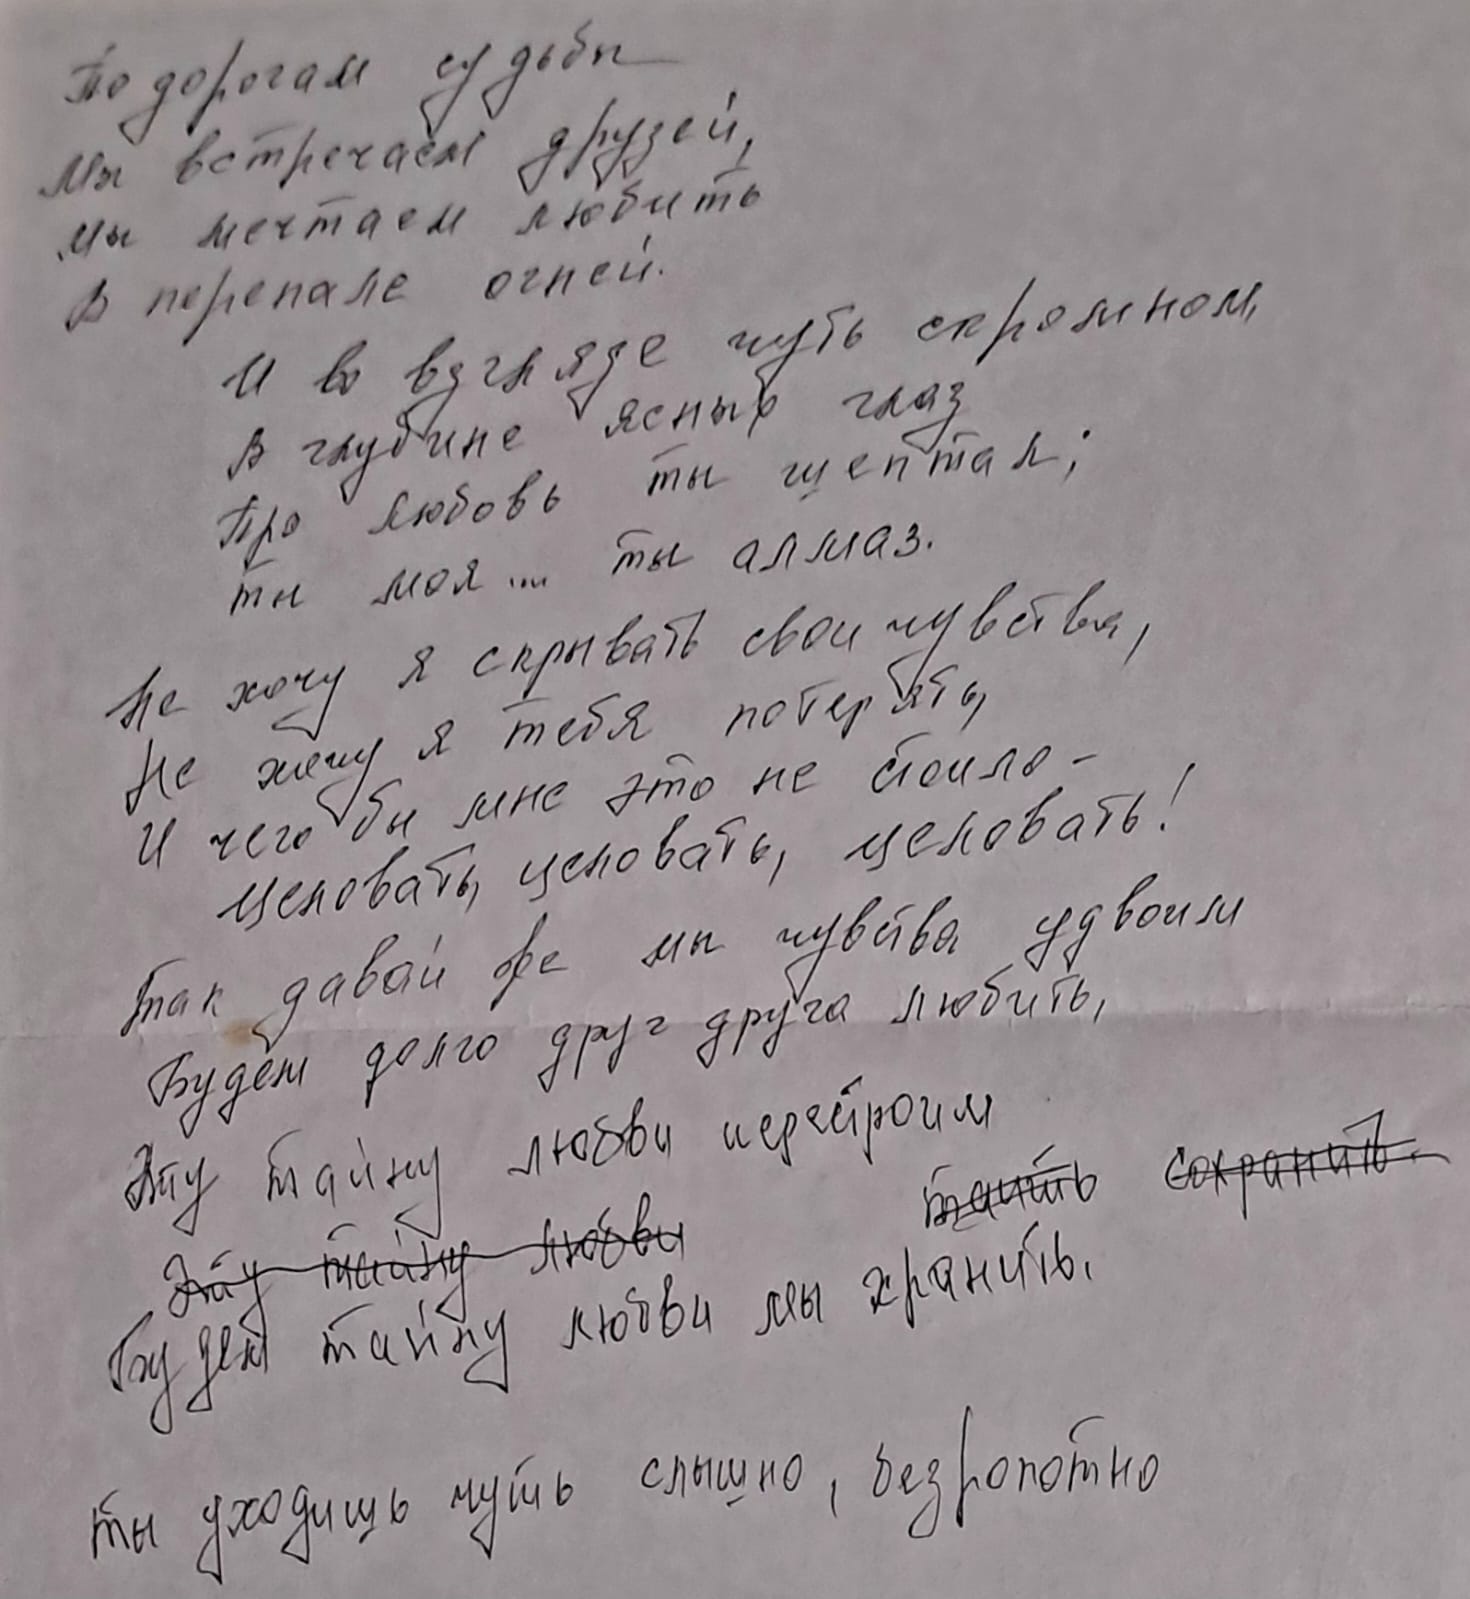 По дорогам судьбы
Мы встречаем друзей,
Мы мечтаем любить
В перепале огней.
И во взгляде чуть скромном,
В глубине ясных глаз
Про любовь ты шептал;
Ты моя... ты алмаз.
Не хочу я скрывать свои чувства,
Не хочу я тебя потерять,
И чего бы мне это не стоило -
Целовать, целовать, целовать!
Так давай же мы чувства удвоим
Будем долго друг друга любить,
Эту тайну любви перестроим
таить сохранить.
Эту тайну любви
Будем тайну любви мы хранить.
Ты уходишь чуть слышно, безропотно